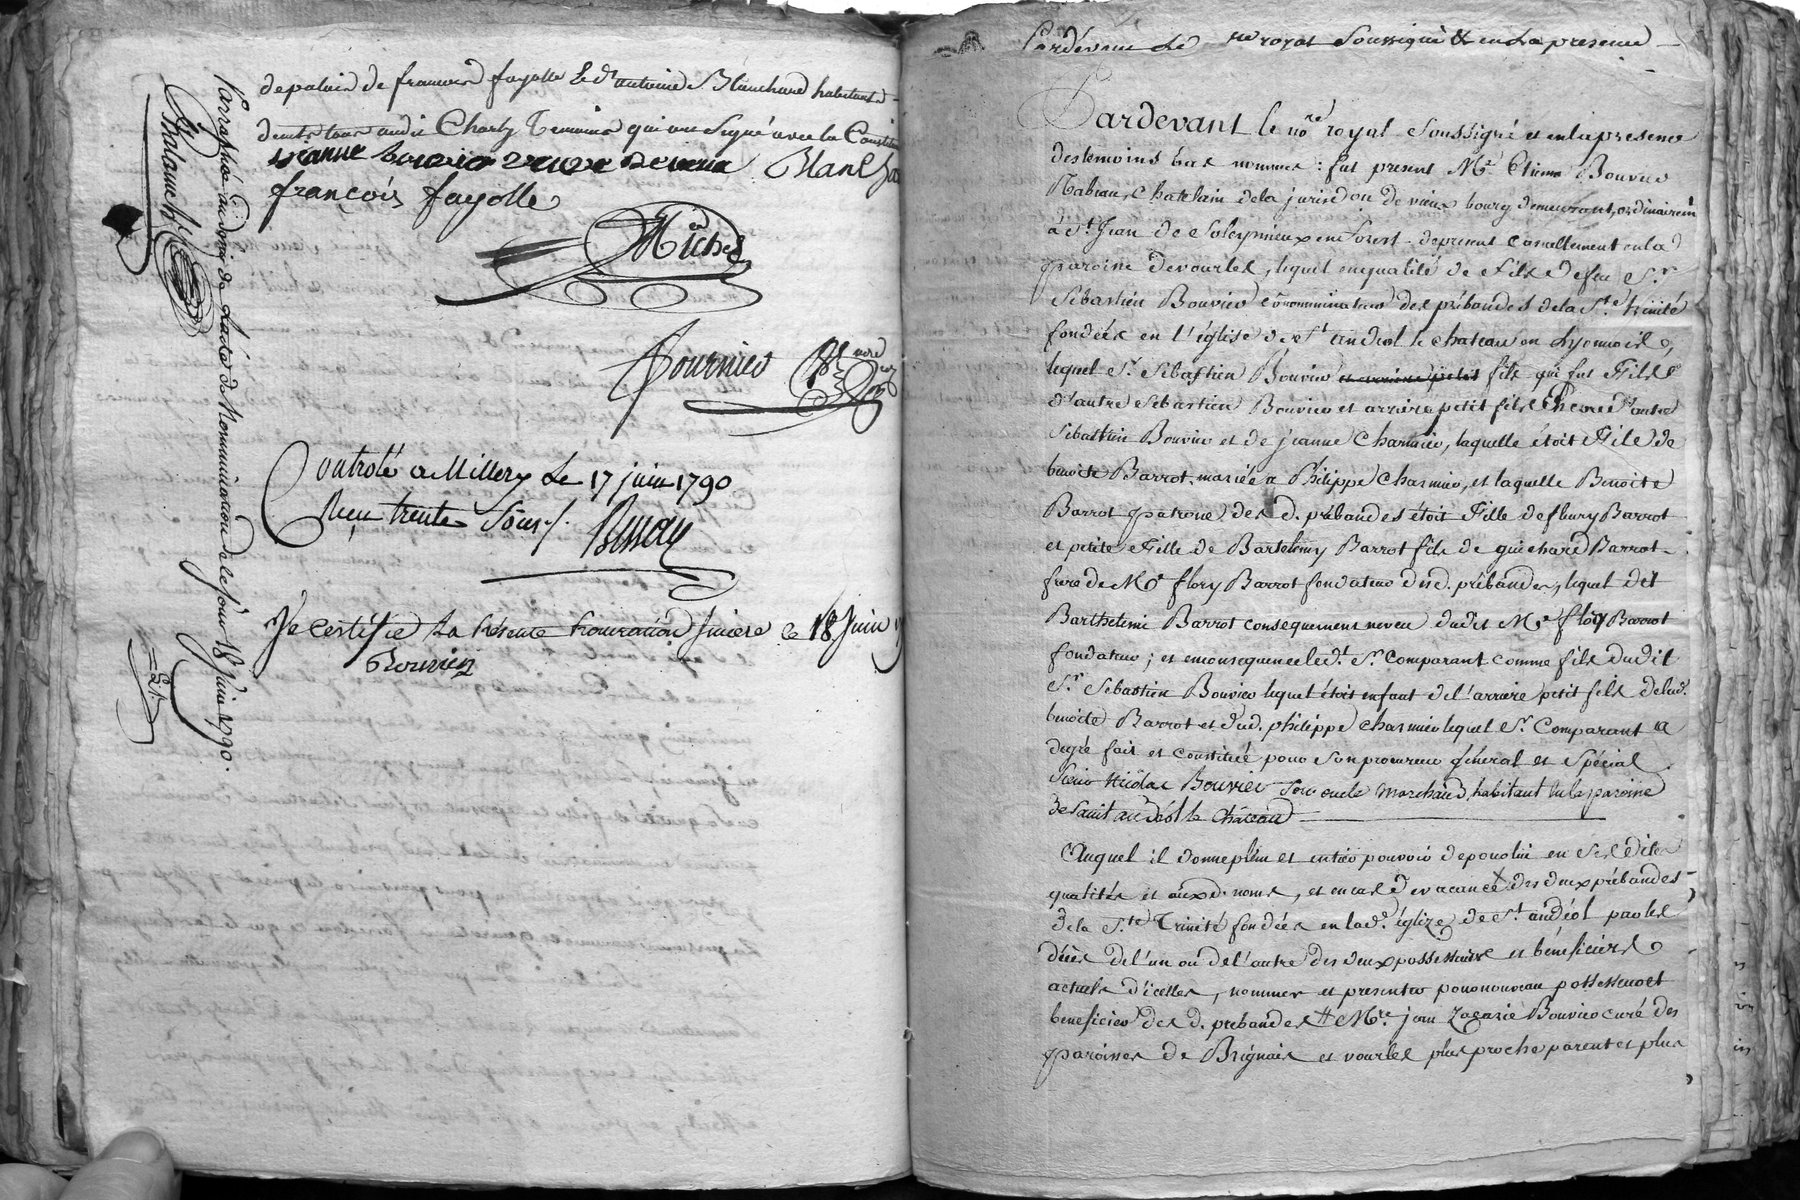 de palais de francois fayolle & dt antoine Blanchard habitants
dentr'eux audit Charly temoins qui ont signé avec la Constituante
vianne bouvier veuve Blancha
françois fayolle
Michel
fournier
Controlé a Millery le 17 juin 1790
Reçu trente Sous
Je certifie la présente sincere ce 18 Juin
Paraphé au désir de l'acte de Nomination de ce jour 18 Juin 1790.
Pardevant le nre royal Soussigné & en la presence
Pardevant le nore royal Soussigné et en la presence
des temoins bas nommés : fut present Mr. Etienne Bouvier
Chatelain de la jurisdon de vieux bourg demeurant ordinairement
à St. Jean de Soleymieux en forest, de present casuellement en la
paroisse de vourles, lequel en qualité de Fils de feu Sr.
Sebastien Bouvier conominateur des prébandes de la Ste. trinité
fondées en l'église de St andéol le chateau en Lyonnois,
lequel Sr. Sebastien Bouvier fils qui fut Fils
d'autre Sebastien Bouvier et arriere petit fils d'autre
Sebastien Bouvier et de jeanne Charmier, laquelle étoit Fille de
benoite Barrot, mariée a Philippe Charmier, et laquelle Benoite
Barrot patrone des d. prébandes étoit Fille de fleury Barrot
et petite Fille de Bartelemy Barrot fils de guichard Barrot
frere de Me flory Barrot fondateur desd. prébandes, lequel dit
Barthelemi Barrot consequemment neveu dudit Me flory Barrot
fondateur ; et en consequence led. Sr. Comparant comme fils dudit
Sr. Sebastien Bouvier lequel étoit enfant de l'arriere petit fils de lad.
benoite Barrot et dud. philippe Charmier lequel Sr. Comparant a
degré fait et constitué pour son procureur général et spécial
Sieur Nicolas Bouvier son oncle marchand, habitant en la paroisse
de Saint andéol le Château
Auquel il donne plein et entier pouvoir de pour lui en ses dites
qualités et aux d. noms, et en cas de vacance des deux prébandes
de la Ste Trinité fondées en lad. églize de St. andéol par les
décès de l'un ou de l'autre des deux possesseurs et bénéficiers
actuels d'icelles, nommer et presenter pour nouveau possesseur et
beneficier des d. prebandes Mre. jean Zacarie Bouvier curé des
paroisses de Brignais et vourles plus proche parent et plus